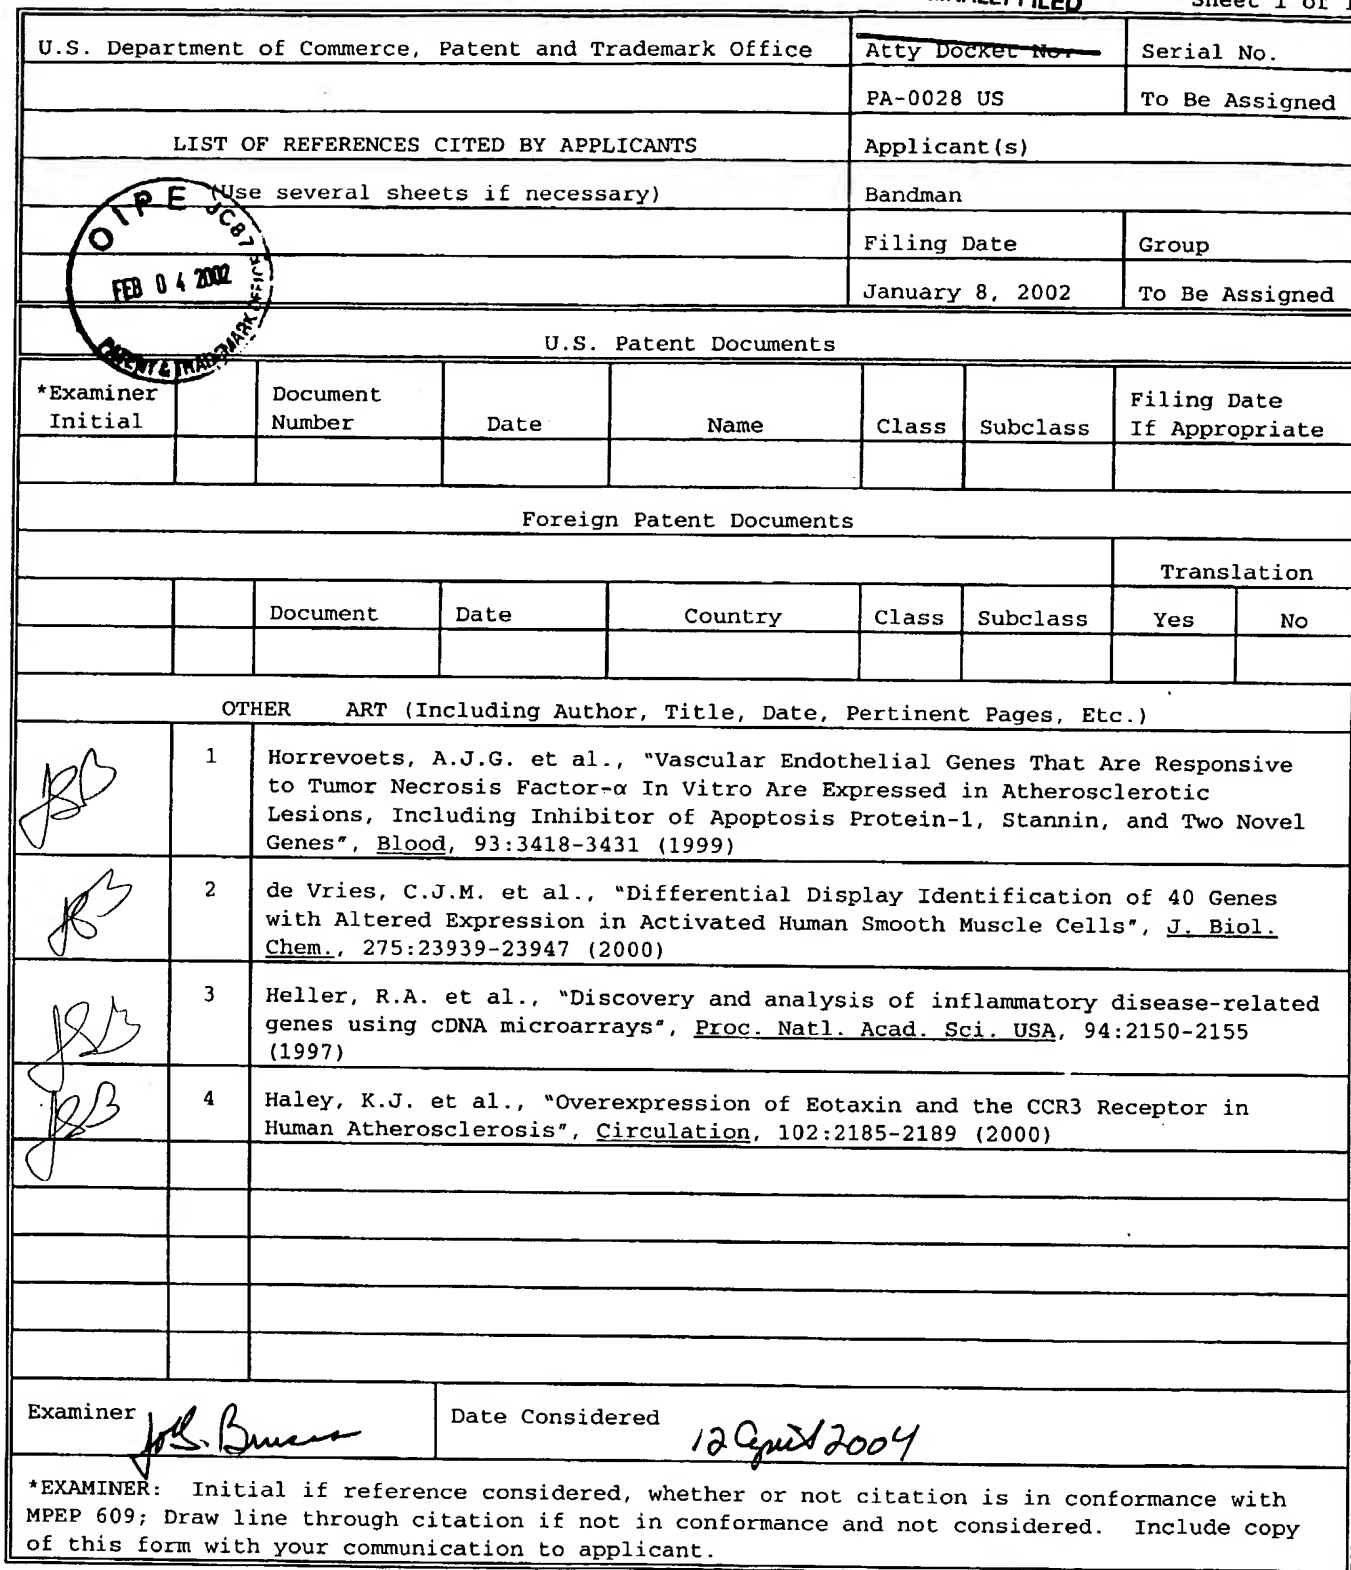 Sheet 1 of 1
U.S. Department of Commerce, Patent and Trademark Office
Atty Docket No.
Serial No.
PA-0028 US
To Be Assigned
LIST OF REFERENCES CITED BY APPLICANTS
Applicant(s)
(Use several sheets if necessary)
Bandman
Filing Date
Group
January 8, 2002
To Be Assigned
OIPE JC87
FEB 04 2002
PATENT & TRADEMARK OFFICE
U.S. Patent Documents
*Examiner Initial
Document Number
Date
Name
Class
Subclass
Filing Date If Appropriate
Foreign Patent Documents
Translation
Document
Date
Country
Class
Subclass
Yes
No
OTHER ART (Including Author, Title, Date, Pertinent Pages, Etc.)
JSB
1
Horrevoets, A.J.G. et al., "Vascular Endothelial Genes That Are Responsive
to Tumor Necrosis Factor-α In Vitro Are Expressed in Atherosclerotic
Lesions, Including Inhibitor of Apoptosis Protein-1, Stannin, and Two Novel
Genes", Blood, 93:3418-3431 (1999)
JSB
2
de Vries, C.J.M. et al., "Differential Display Identification of 40 Genes
with Altered Expression in Activated Human Smooth Muscle Cells", J. Biol.
Chem., 275:23939-23947 (2000)
JSB
3
Heller, R.A. et al., "Discovery and analysis of inflammatory disease-related
genes using cDNA microarrays", Proc. Natl. Acad. Sci. USA, 94:2150-2155
(1997)
JSB
4
Haley, K.J. et al., "Overexpression of Eotaxin and the CCR3 Receptor in
Human Atherosclerosis", Circulation, 102:2185-2189 (2000)
Examiner
Date Considered
12 April 2004
*EXAMINER: Initial if reference considered, whether or not citation is in conformance with
MPEP 609; Draw line through citation if not in conformance and not considered. Include copy
of this form with your communication to applicant.